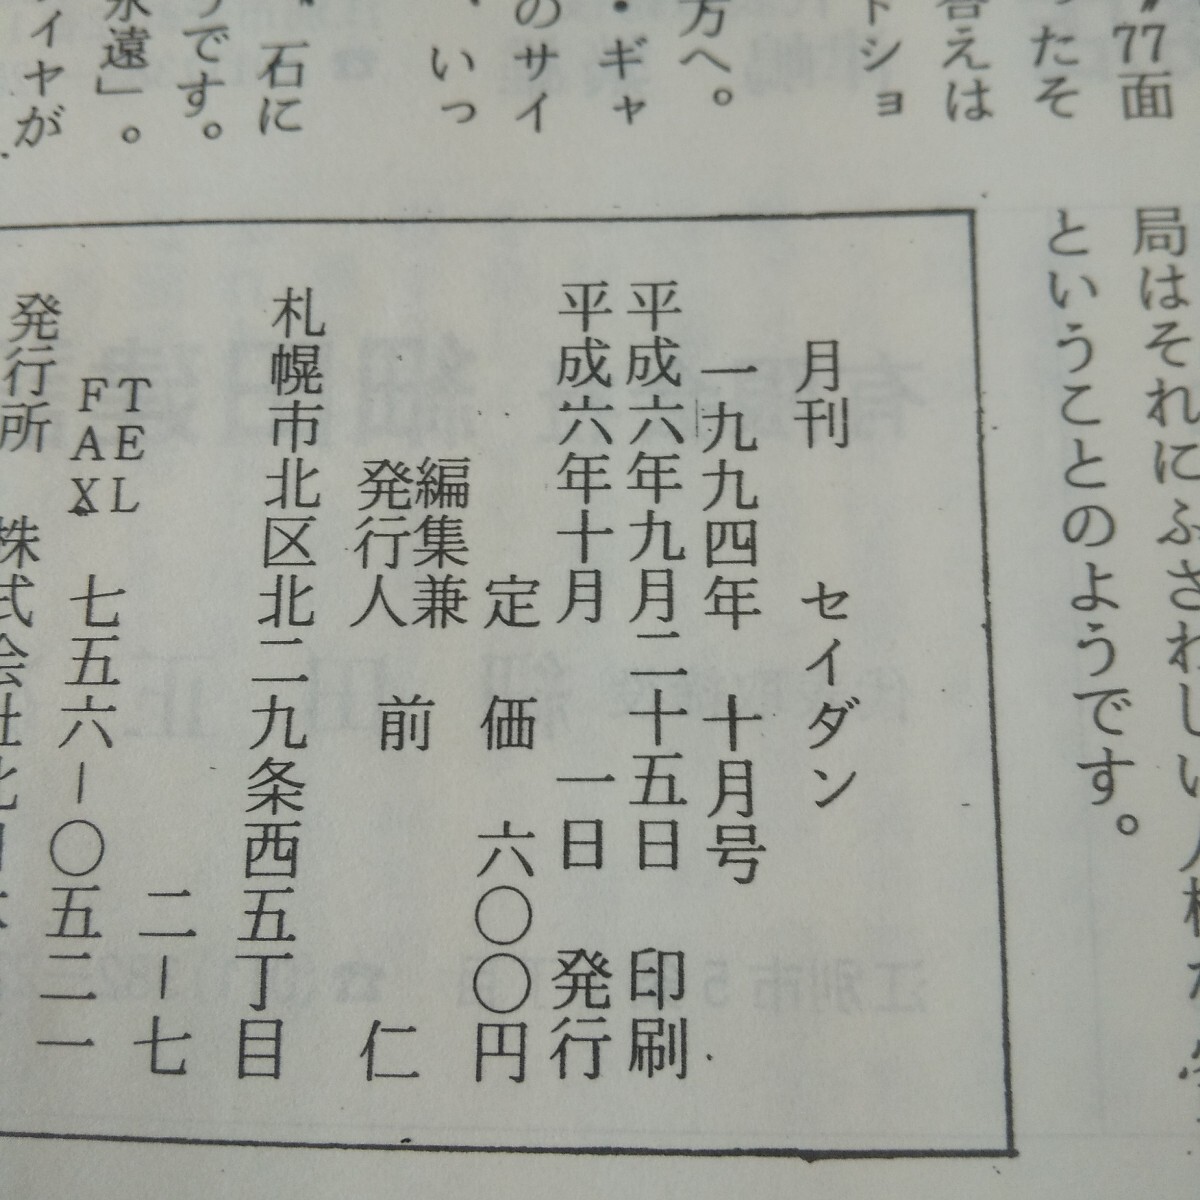 〝77面
ったそ
答えは
トショ
方へ。
・ギャ
のサイ
、いっ
〝石に
うです。
永遠」。
ィヤが
局はそれにふさわしい人格
ということのようです。
月刊 セイダン
一九九四年 十月号
平成六年九月二十五日 印刷
平成六年十月 一日 発行
定価 六〇〇円
編集兼
発行人 前 仁
札幌市北区北二九条西五丁目
二－七
TEL
FAX 七五六－〇五二一
発行所 株式会社北日本